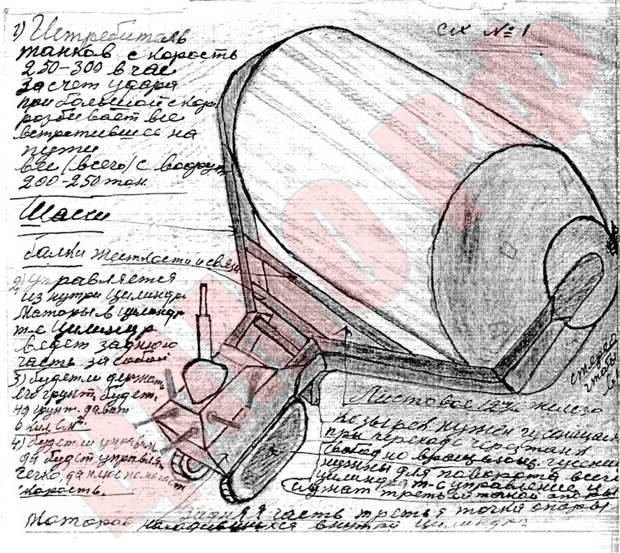 1) Истребитель
танков скорость
250-300 в час
За счет удара
при большой скор.
разбивает все
встретившееся на
пути
вес (всего) с водой
200-250 тон.
сх № 1
Шасси
балки жесткости и связи
2) управляется
из нутри цилиндра
Моторы в цилиндре
т-е цилиндр
ведет заднюю
часть за собой
3) будет ли держать
его грунт, будет.
на грунт. дават
6 кил см²
4) будет ли управля
да будет управля
легко,
скорость.
Листовое железо
козырек нужен гусеницам
при переходе через танк
свободно
нужны для поворота всего
цилиндра т-е управление и
служат третьей точкой опоры
задняя часть третья точка опоры
Моторов находившихся внутри цилиндра
ЦАМО РФ